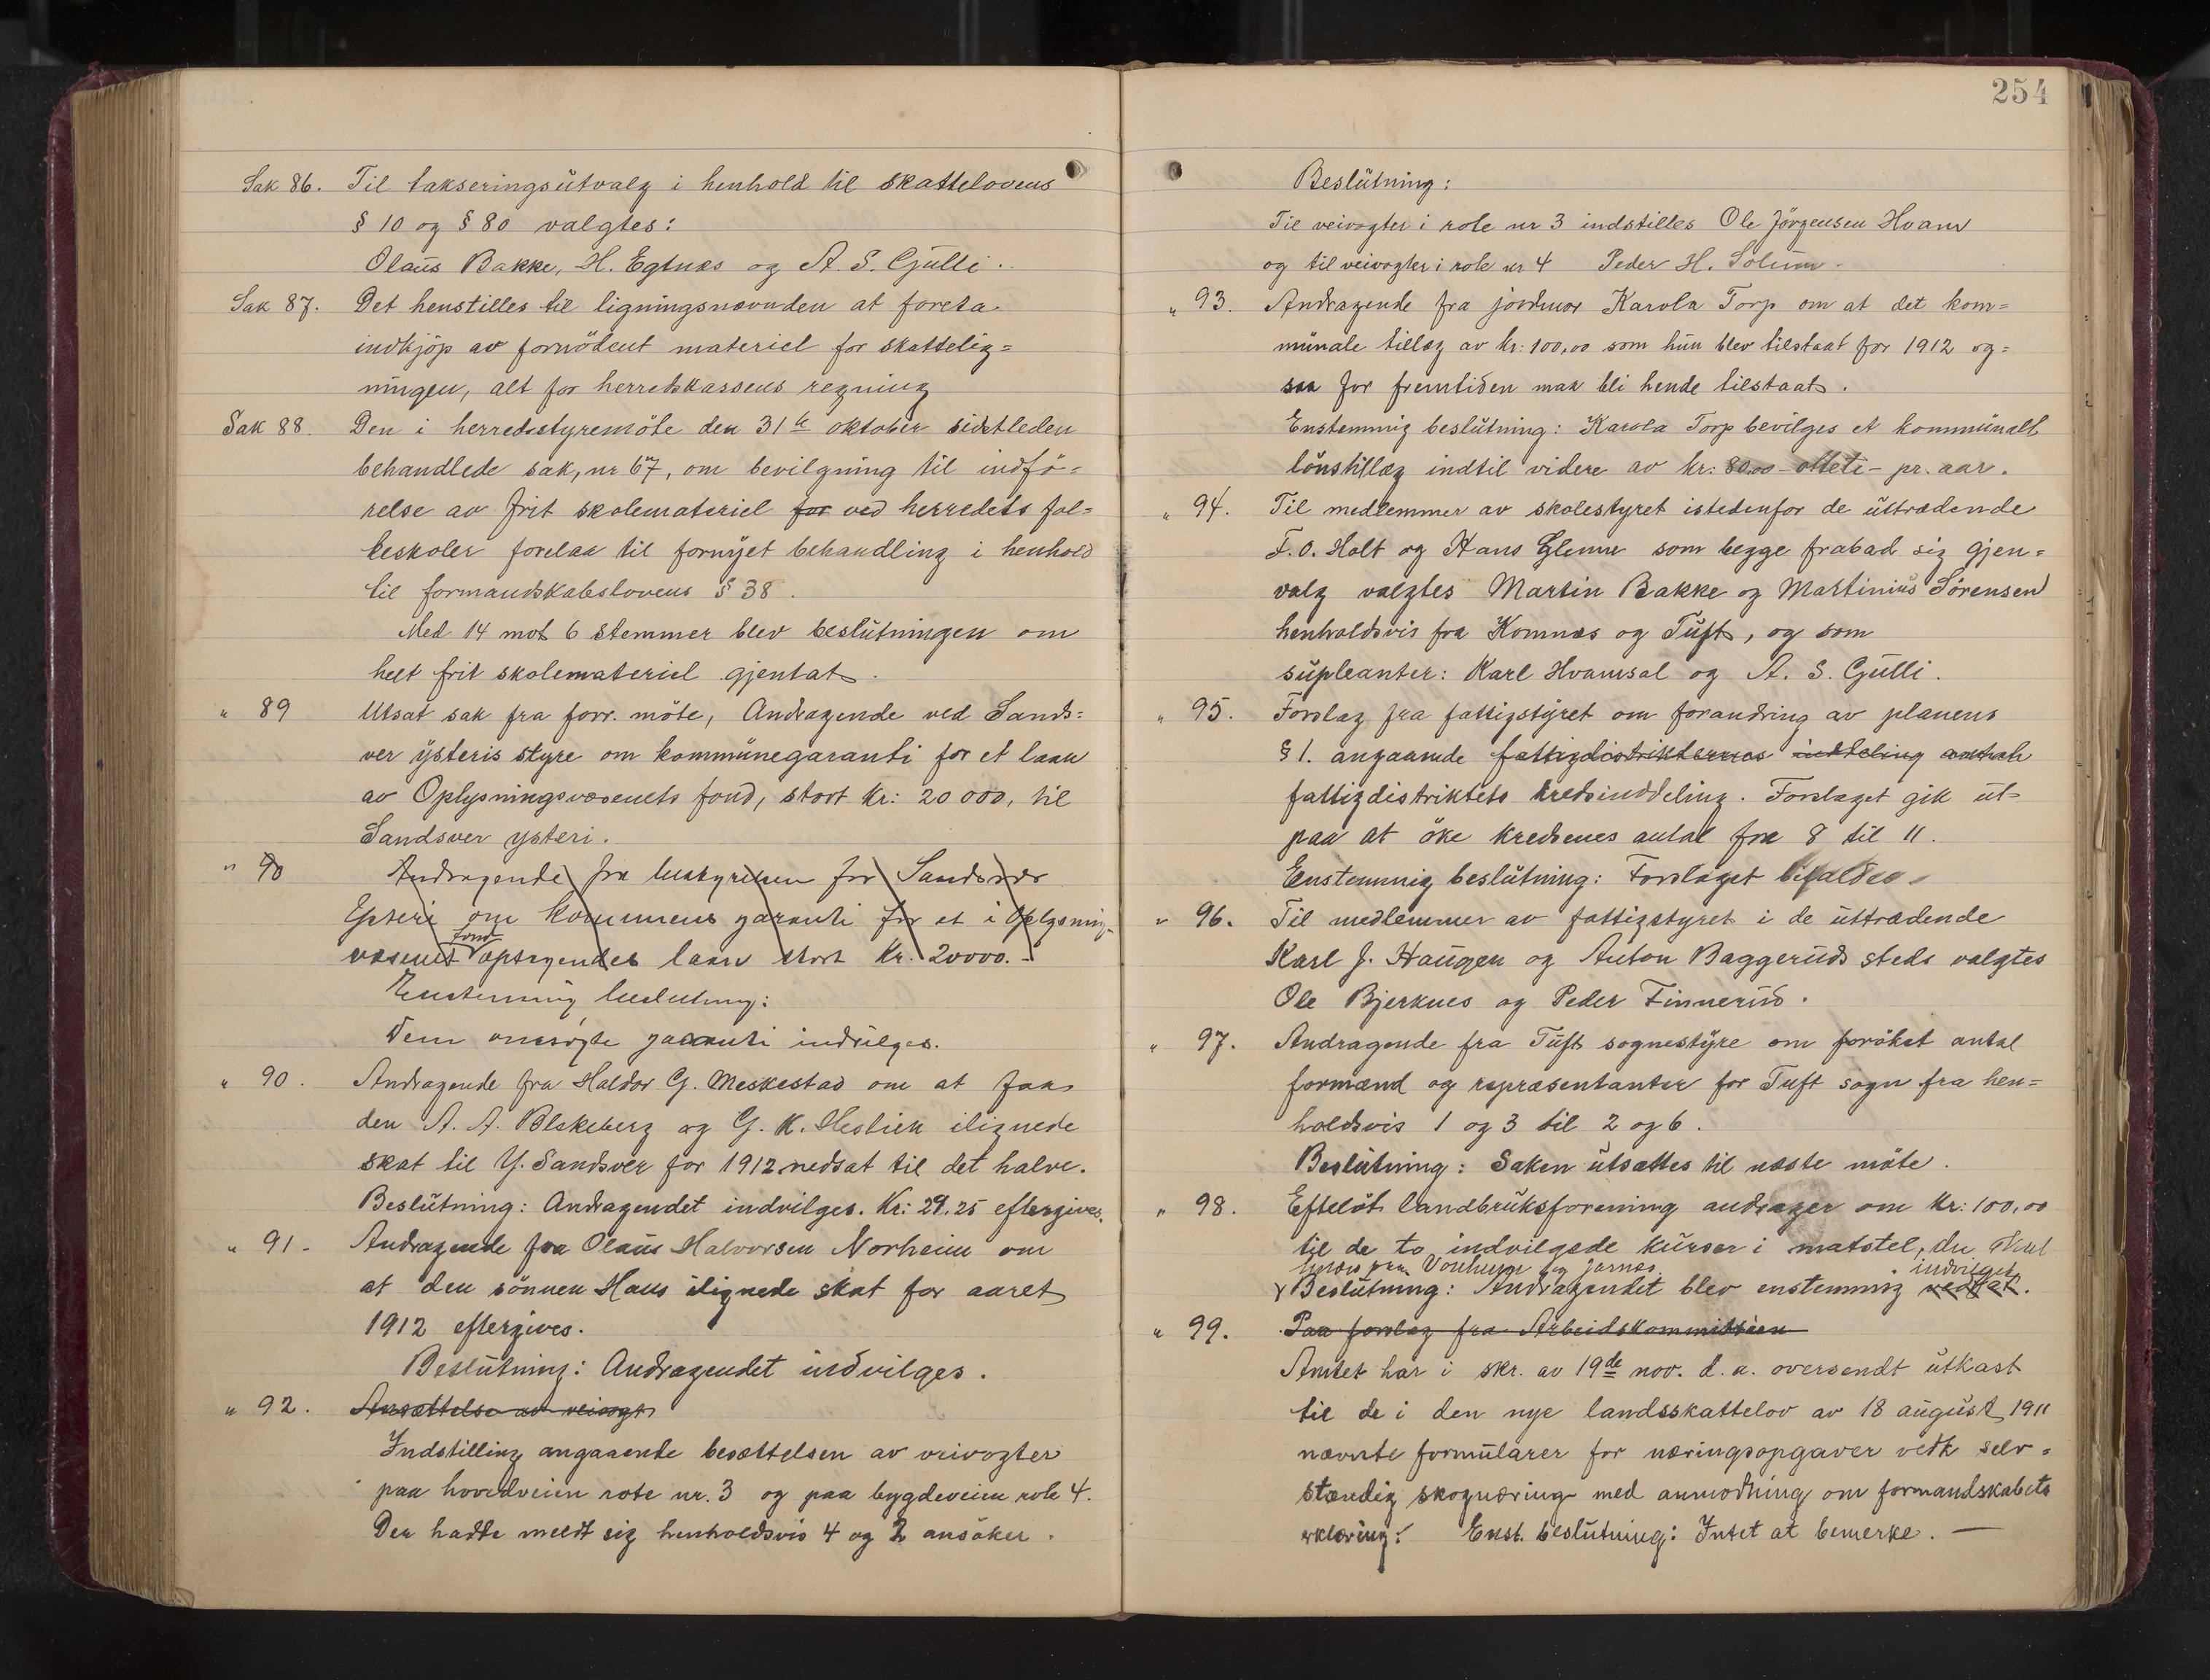 Sak 86. Til takseringsutvalg i henhold til skattelovens
§ 10 og § 80 valgtes:
Olaus Bakke, H. Egtnæs og A. S. Gulli.
Sak 87. Det henstilles til ligningsnævnden at foreta
indkjöp av fornödent materiel for skattelig=
ningen, alt for herredskassens regning
Sak 88. Den i herredsstyremöte den 31te oktober sidstleden
behandlede sak, nr 67, om bevilgning til indfö=
relse av frit skolemateriel for ved herredets fol=
keskoler forelaa til fornyet behandling i henhold
til formandskabslovens § 38.
Med 14 mot 6 stemmer blev beslutningen om
helt frit skolemateriel gjentat.
" 89 Utsat sak fra forr. möte, Andragende ved Sands=
ver ysteris styre om kommunegaranti for et laan
av Oplysningsvæsenets fond, stort kr: 20 000, til
Sandsver ysteri.
" 90 Andragende fra bestyrelsen for Sandsver
Ysteri om kommunens garanti for et i Oplysnings-
væsenets fond optagendes laan stort kr. 20000.-
Enstemmig beslutning:
Den ansøgte garanti indvilges.
" 90. Andragende fra Haldor G. Meskestad om at faa
den A. A. Blekeberg og G. K. Heslien ilignede
skat til Y. Sandsver for 1912 nedsat til det halve.
Beslutning: Andragendet indvilges. Kr: 29.25 eftergives.
" 91. Andragende fra Olaus Halvorsen Norheim om
at den sönnen Hans ilignede skat for aaret
1912 eftergives.
Beslutning: Andragendet indvilges.
" 92. Ansættelse av veivogt
Indstilling angaaende besættelsen av veivogter
paa hovedveien rote nr. 3 og paa bygdeveien rote 4.
Der hadde meldt sig henholdsvis 4 og 2 ansöker.
254
Beslutning:
Til veivogter i rote nr 3 indstilles Ole Jörgensen Hvam
og til veivogter i rote nr 4 Peder H. Solum.
" 93. Andragende fra jordmor Karola Torp om at det kom=
munale tillæg av kr: 100,00 som hun blev tilstaat for 1912 og=
saa for fremtiden maa bli hende tilstaat.
Enstemmig beslutning: Karola Torp bevilges et kommunalt
lönstillæg indtil videre av kr: 80.00 - otteti - pr. aar.
" 94. Til medlemmer av skolestyret istedenfor de uttrædende
T. O. Holt og Hans Glenne som begge frabad sig gjen=
valg valgtes Martin Bakke og Martinius Sörensen
henholdsvis fra Komnæs og Tuft, og som
supleanter: Karl Hvamsal og A. S. Gulli.
" 95. Forslag fra fattigstyret om forandring av planens
§ 1. angaaende fattigdistrikternes inddeling antal
fattigdistriktets kredsinddeling. Forslaget gik ut=
paa at öke kredsenes antal fra 8 til 11.
Enstemmig beslutning: Forslaget bifaldes.
" 96. Til medlemmer av fattigstyret i de uttrædende
Karl J. Haugen og Anton Baggeruds steds valgtes
Ole Bjerknes og Peder Finnerud.
" 97. Andragende fra Tuft sognestyre om foröket antal
formænd og repræsentanter for Tuft sogn fra hen=
holdsvis 1 og 3 til 2 og 6.
Beslutning: Saken utsættes til næste möte.
" 98. Efteløt landbruksforening andrager om kr: 100,00
til de to indvilgede kurser i matstel, der skal
holdes paa og Jarnæs. indvilget
Beslutning: Andragendet blev enstemmig vedtat.
" 99. Paa forslag fra Arbeidskommittéen
Amtet har i skr. av 19de nov. d. a. oversendt utkast
til de i den nye landsskattelov av 18 august 1911
nævnte formularer for næringsopgaver vedk selv=
stændig skognæring med anmodning om formandskabets
erklæring. Enst. beslutning: Intet at bemerke. —